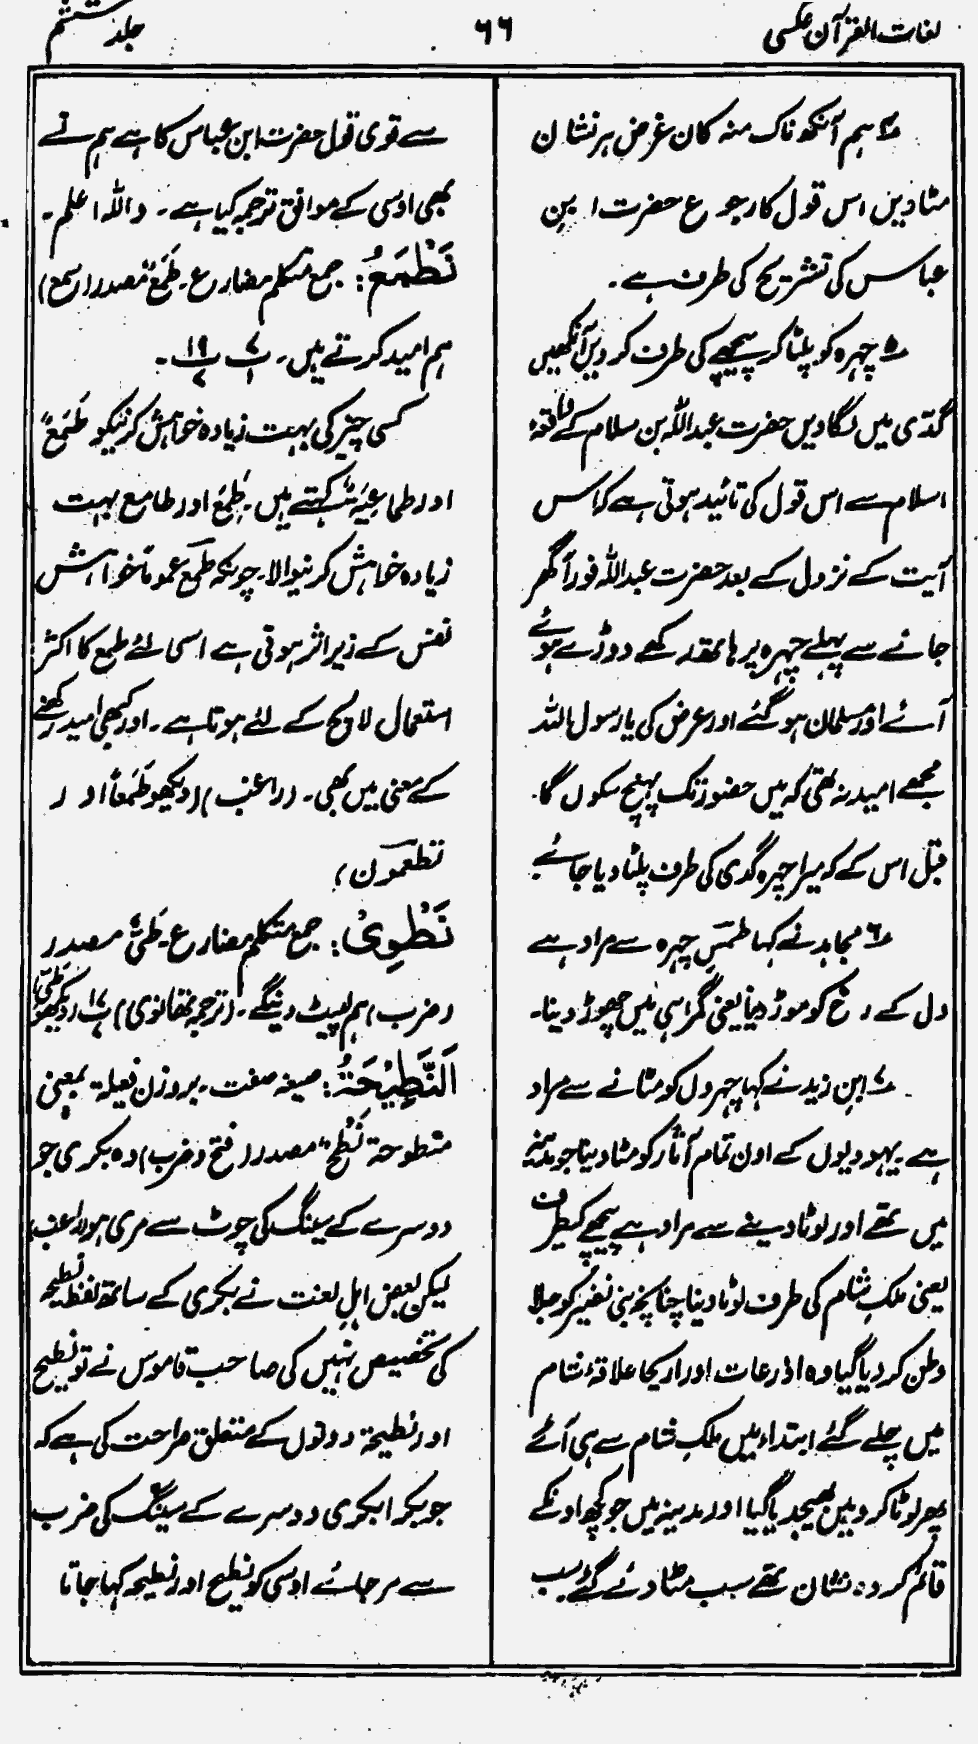 لغات القرآن عکسی
۶۶
جلد ششم
۴؎ ہم آنکھ ناک منہ کان غرض ہر نشان
مٹادیں اس قول کا رجوع حضرت ابن
عباس کی تشریح کی طرف ہے۔
۵؎ چہرہ کو پلٹا کر پیچھے کی طرف کر دیں آنکھیں
گدّی میں لگادیں حضرت عبداللہ بن سلام کے واقعۂ
اسلام سے اس قول کی تائید ہوتی ہے کہ اس
آیت کے نزول کے بعد حضرت عبداللہ فوراً گھر
جانے سے پہلے چہرہ پر ہاتھ رکھے دوڑے ہوئے
آئے اور مسلمان ہوگئے اور عرض کی یا رسول اللہ
مجھے امید نہ تھی کہ میں حضور تک پہنچ سکوں گا۔
قبل اس کے کہ میرا چہرہ گدی کی طرف پلٹا دیا جائے۔
۶؎ مجاہد نے کہا طمسِ چہرہ سے مراد ہے
دل کے رخ کو موڑ دینا یعنی گمراہی میں چھوڑ دینا۔
۷؎ ابن زید نے کہا چہروں کو مٹانے سے مراد
ہے یہودیوں کے اون تمام آثار کو مٹا دینا جو مدینہ
میں تھے اور لوٹا دینے سے مراد ہے پیچھے کیطرف
یعنی ملکِ شام کی طرف لوٹا دینا چنانچہ بنی نضیر کو جلا
وطن کر دیا گیا وہ اذرعات اور اریحا علاقۂ شام
میں چلے گئے ابتداء میں ملکِ شام سے ہی آئے
پھر لوٹا کر وہیں بھیجدیا گیا اور مدینہ میں جو کچھ اونکے
قائم کردہ نشان تھے سب مٹا دئے گئے سب
سے قوی قول حضرت ابن عباس کا ہے ہم نے
بھی اوسی کے موافق ترجمہ کیا ہے۔ واللہ اعلم۔
نَطْمَعُ: جمع متکلم مضارع۔ طَمَعٌ مصدر (سمع)
ہم امید کرتے ہیں۔ پ ۷/۱ پ ۱۹/۷۔
کسی چیز کی بہت زیادہ خواہش کرنیکو طَمَعٌ
اور طماعِیَۃٌ کہتے ہیں۔ طَمِع اور طامع بہت
زیادہ خواہش کرنیوالا۔ چونکہ طمَع عموماً خواہش
نفس کے زیر اثر ہوتی ہے اسی لئے طمع کا اکثر
استعمال لالچ کے لئے ہوتا ہے۔ اور کبھی امید رکھنے
کے معنی میں بھی۔ (راغب) (دیکھو طَمَعاً اور
تطمعون)
نَطْوِیْ: جمع متکلم مضارع۔ طَیٌّ مصدر
(ضرب) ہم لپیٹ دینگے۔ (ترجمہ تھانوی) پ ۱۷ (دیکھو طَیّ)
اَلنَّطِیْحَۃُ: صیغہ صفت۔ بروزن فعیلۃ بمعنی
منطوحۃ نَطْحٌ مصدر (فتح و ضرب) وہ بکری جو
دوسرے کے سینگ کی چوٹ سے مری ہو (راغب)
لیکن بعض اہلِ لغت نے بکری کے ساتھ لفظ نطیحہ
کی تخصیص نہیں کی صاحب قاموس نے تو نطیح
اور نطیحۃ دونوں کے متعلق صراحت کی ہے کہ
جو بکرا بکری دوسرے کے سینگ کی ضرب
سے مر جائے اوسی کو نطیح اور نطیحہ کہا جاتا